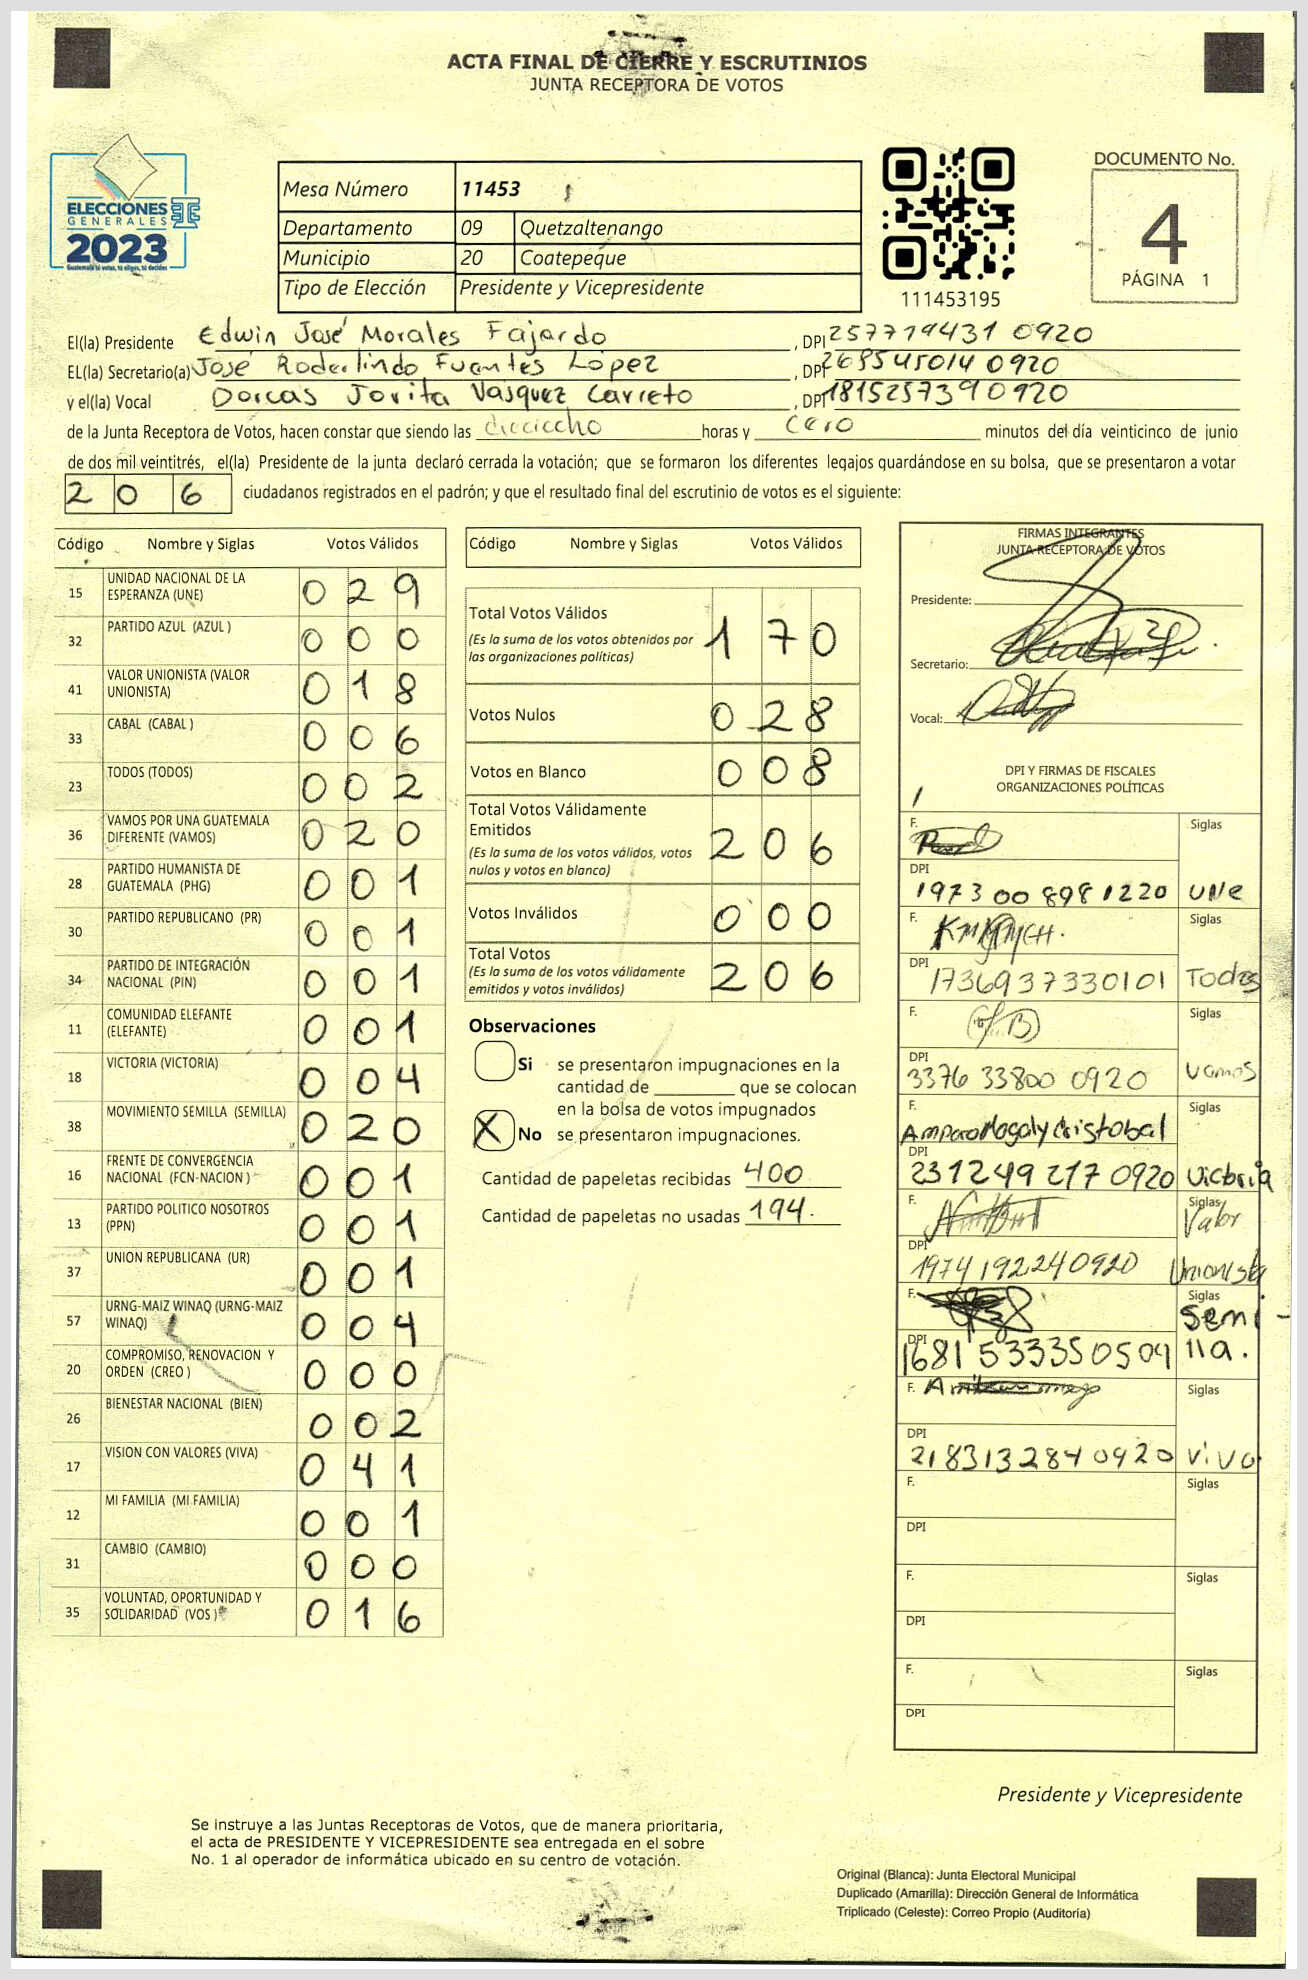 ACTA FINAL DE CIERRE Y ESCRUTINIOS
JUNTA RECEPTORA DE VOTOS
ELECCIONES
GENERALES
2023
Guatemala tú votas, tú eliges, tú decides
Mesa Número 11453
Departamento 09 Quetzaltenango
Municipio 20 Coatepeque
Tipo de Elección Presidente y Vicepresidente
111453195
DOCUMENTO No.
4
PÁGINA 1
El(la) Presidente Edwin José Morales Fajardo, DPI 257719431 0920
EL(la) Secretario(a) José Roderlindo Fuentes López, DPI 268545014 0920
y el(la) Vocal Dorcas Jovita Vasquez Carreto, DPI 181525739 0920
de la Junta Receptora de Votos, hacen constar que siendo las dieciocho horas y cero minutos del día veinticinco de junio
de dos mil veintitrés, el(la) Presidente de la junta declaró cerrada la votación; que se formaron los diferentes legajos guardándose en su bolsa, que se presentaron a votar
206 ciudadanos registrados en el padrón; y que el resultado final del escrutinio de votos es el siguiente:
Código Nombre y Siglas Votos Válidos
15 UNIDAD NACIONAL DE LA ESPERANZA (UNE) 029
32 PARTIDO AZUL (AZUL ) 000
41 VALOR UNIONISTA (VALOR UNIONISTA) 018
33 CABAL (CABAL ) 006
23 TODOS (TODOS) 002
36 VAMOS POR UNA GUATEMALA DIFERENTE (VAMOS) 020
28 PARTIDO HUMANISTA DE GUATEMALA (PHG) 001
30 PARTIDO REPUBLICANO (PR) 001
34 PARTIDO DE INTEGRACIÓN NACIONAL (PIN) 001
11 COMUNIDAD ELEFANTE (ELEFANTE) 001
18 VICTORIA (VICTORIA) 004
38 MOVIMIENTO SEMILLA (SEMILLA) 020
16 FRENTE DE CONVERGENCIA NACIONAL (FCN-NACION ) 001
13 PARTIDO POLITICO NOSOTROS (PPN) 001
37 UNION REPUBLICANA (UR) 001
57 URNG-MAIZ WINAQ (URNG-MAIZ WINAQ) 004
20 COMPROMISO, RENOVACION Y ORDEN (CREO ) 000
26 BIENESTAR NACIONAL (BIEN) 002
17 VISION CON VALORES (VIVA) 041
12 MI FAMILIA (MI FAMILIA) 001
31 CAMBIO (CAMBIO) 000
35 VOLUNTAD, OPORTUNIDAD Y SOLIDARIDAD (VOS ) 016
Código Nombre y Siglas Votos Válidos
Total Votos Válidos 170
(Es la suma de los votos obtenidos por
las organizaciones políticas)
Votos Nulos 028
Votos en Blanco 008
Total Votos Válidamente
Emitidos 206
(Es la suma de los votos válidos, votos
nulos y votos en blanco)
Votos Inválidos 000
Total Votos 206
(Es la suma de los votos válidamente
emitidos y votos inválidos)
Observaciones
Si se presentaron impugnaciones en la
cantidad de ________ que se colocan
en la bolsa de votos impugnados
X No se presentaron impugnaciones.
Cantidad de papeletas recibidas 400
Cantidad de papeletas no usadas 194.
FIRMAS INTEGRANTES
JUNTA RECEPTORA DE VOTOS
Presidente:
Secretario:
Vocal:
DPI Y FIRMAS DE FISCALES
ORGANIZACIONES POLÍTICAS
F. Siglas
DPI
1973 00 898 1220 UNe
F. Siglas
DPI
1736937330101 Todos
F. Siglas
DPI
3376 33800 0920 Vamos
F. Siglas
Amparo Magaly Cristobal
DPI
231249 217 0920 Victoria
F. Siglas
Valor
DPI
1974192240920 Unionista
F. Siglas
Semi-
DPI
1681533350509 lla.
F. Siglas
DPI
2183132840920 ViVa
F. Siglas
DPI
F. Siglas
DPI
F. Siglas
DPI
Presidente y Vicepresidente
Se instruye a las Juntas Receptoras de Votos, que de manera prioritaria,
el acta de PRESIDENTE Y VICEPRESIDENTE sea entregada en el sobre
No. 1 al operador de informática ubicado en su centro de votación.
Original (Blanca): Junta Electoral Municipal
Duplicado (Amarilla): Dirección General de Informática
Triplicado (Celeste): Correo Propio (Auditoría)